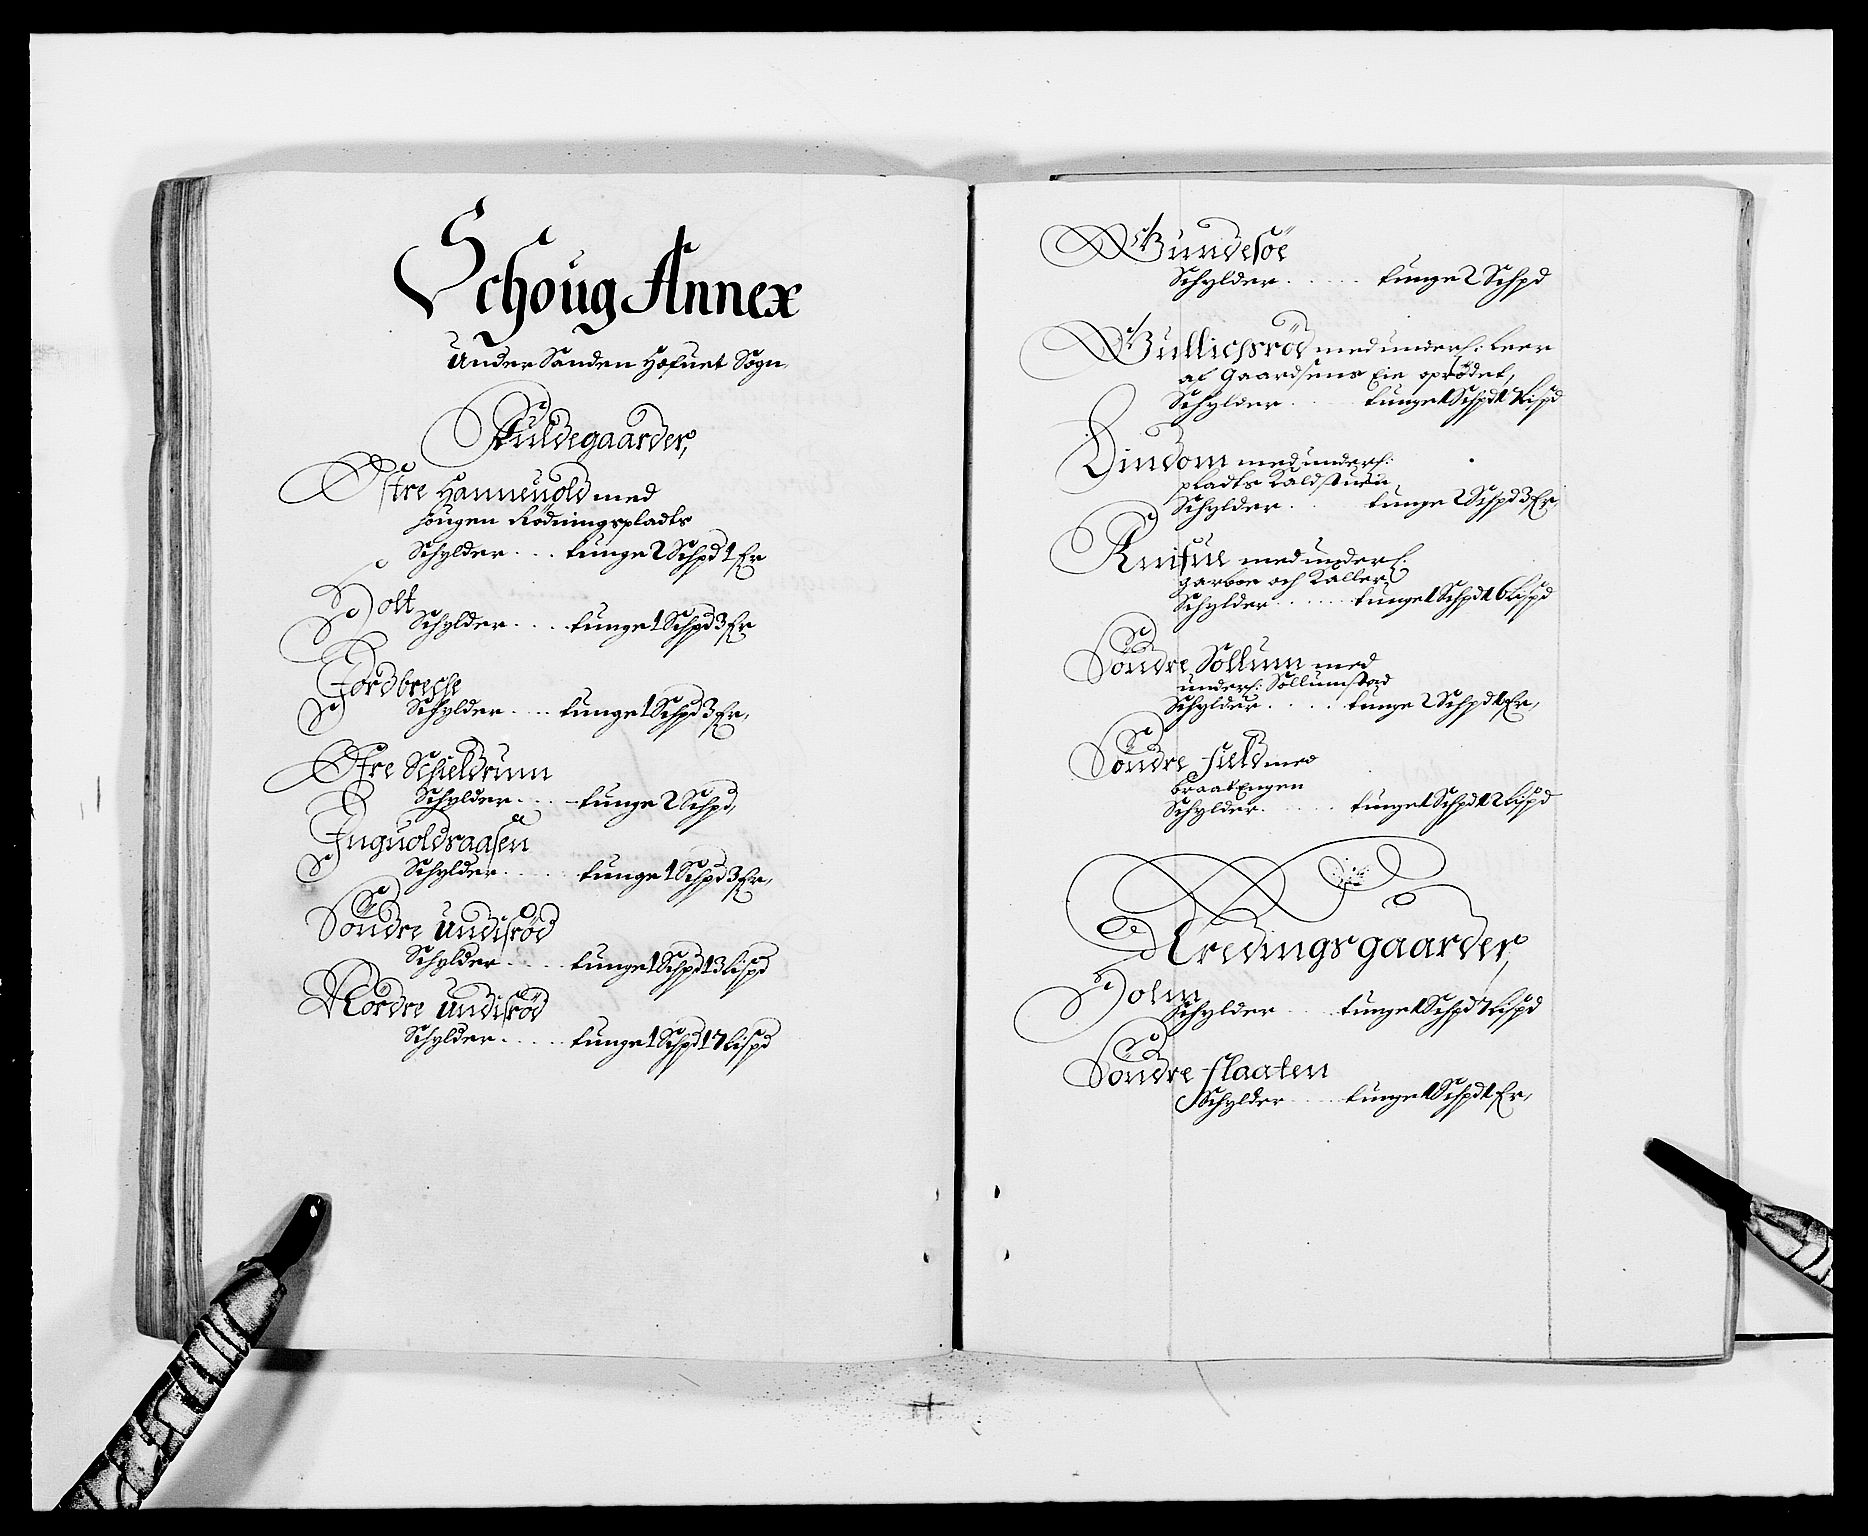 Schoug Annex
Under Sanden Hofuet Sogn
Fuldegaarder,
Østre Hanneuold med
hougen Rödningspladts
Schylder .... tunge 2 Schpd 1 Fr
Holt
Schylder .... tunge 1 Schpd 3 Fr
Jordbreche
Schylder .... tunge 1 Schpd 3 Fr,
Øfre Schieldrum
Schylder .... tunge 2 Schpd,
Inguoldsraasen
Schylder ..... tunge 1 Schpd 3 Fr,
Söndre Undisröd
Schylder ..... tunge 1 Schpd 13 Lispd
Nördre Undisröd
Schylder ..... tunge 1 Schpd 17 Lispd
Gundesöe
Schylder ..... tunge 2 Schpd
Gullichsröd med underl: Leer
af Gaardsens Eie oprödet,
Schylder .... tunge 1 Schpd 17 Lispd
Lindom med underl:
pladts Kaldstuen
Schylder ... tunge 2 Schpd 3 Fr,
Knifue med underl:
garboe och Kaller
Schylder ...... tunge 1 Schpd 16 Lispd
Söndre Sollum med
underl: Sollumstad
Schylder ..... tunge 2 Schpd 1 Fr,
Söndre field med
braatEngen
Schylder ..... tunge 1 Schpd 12 Lispd
Øredingsgaarder,
Holm
Schylder .... tunge 1 Schpd 7 Lispd
Söndre flaaten
Schylder .... tunge 1 Schpd 1 Fr,